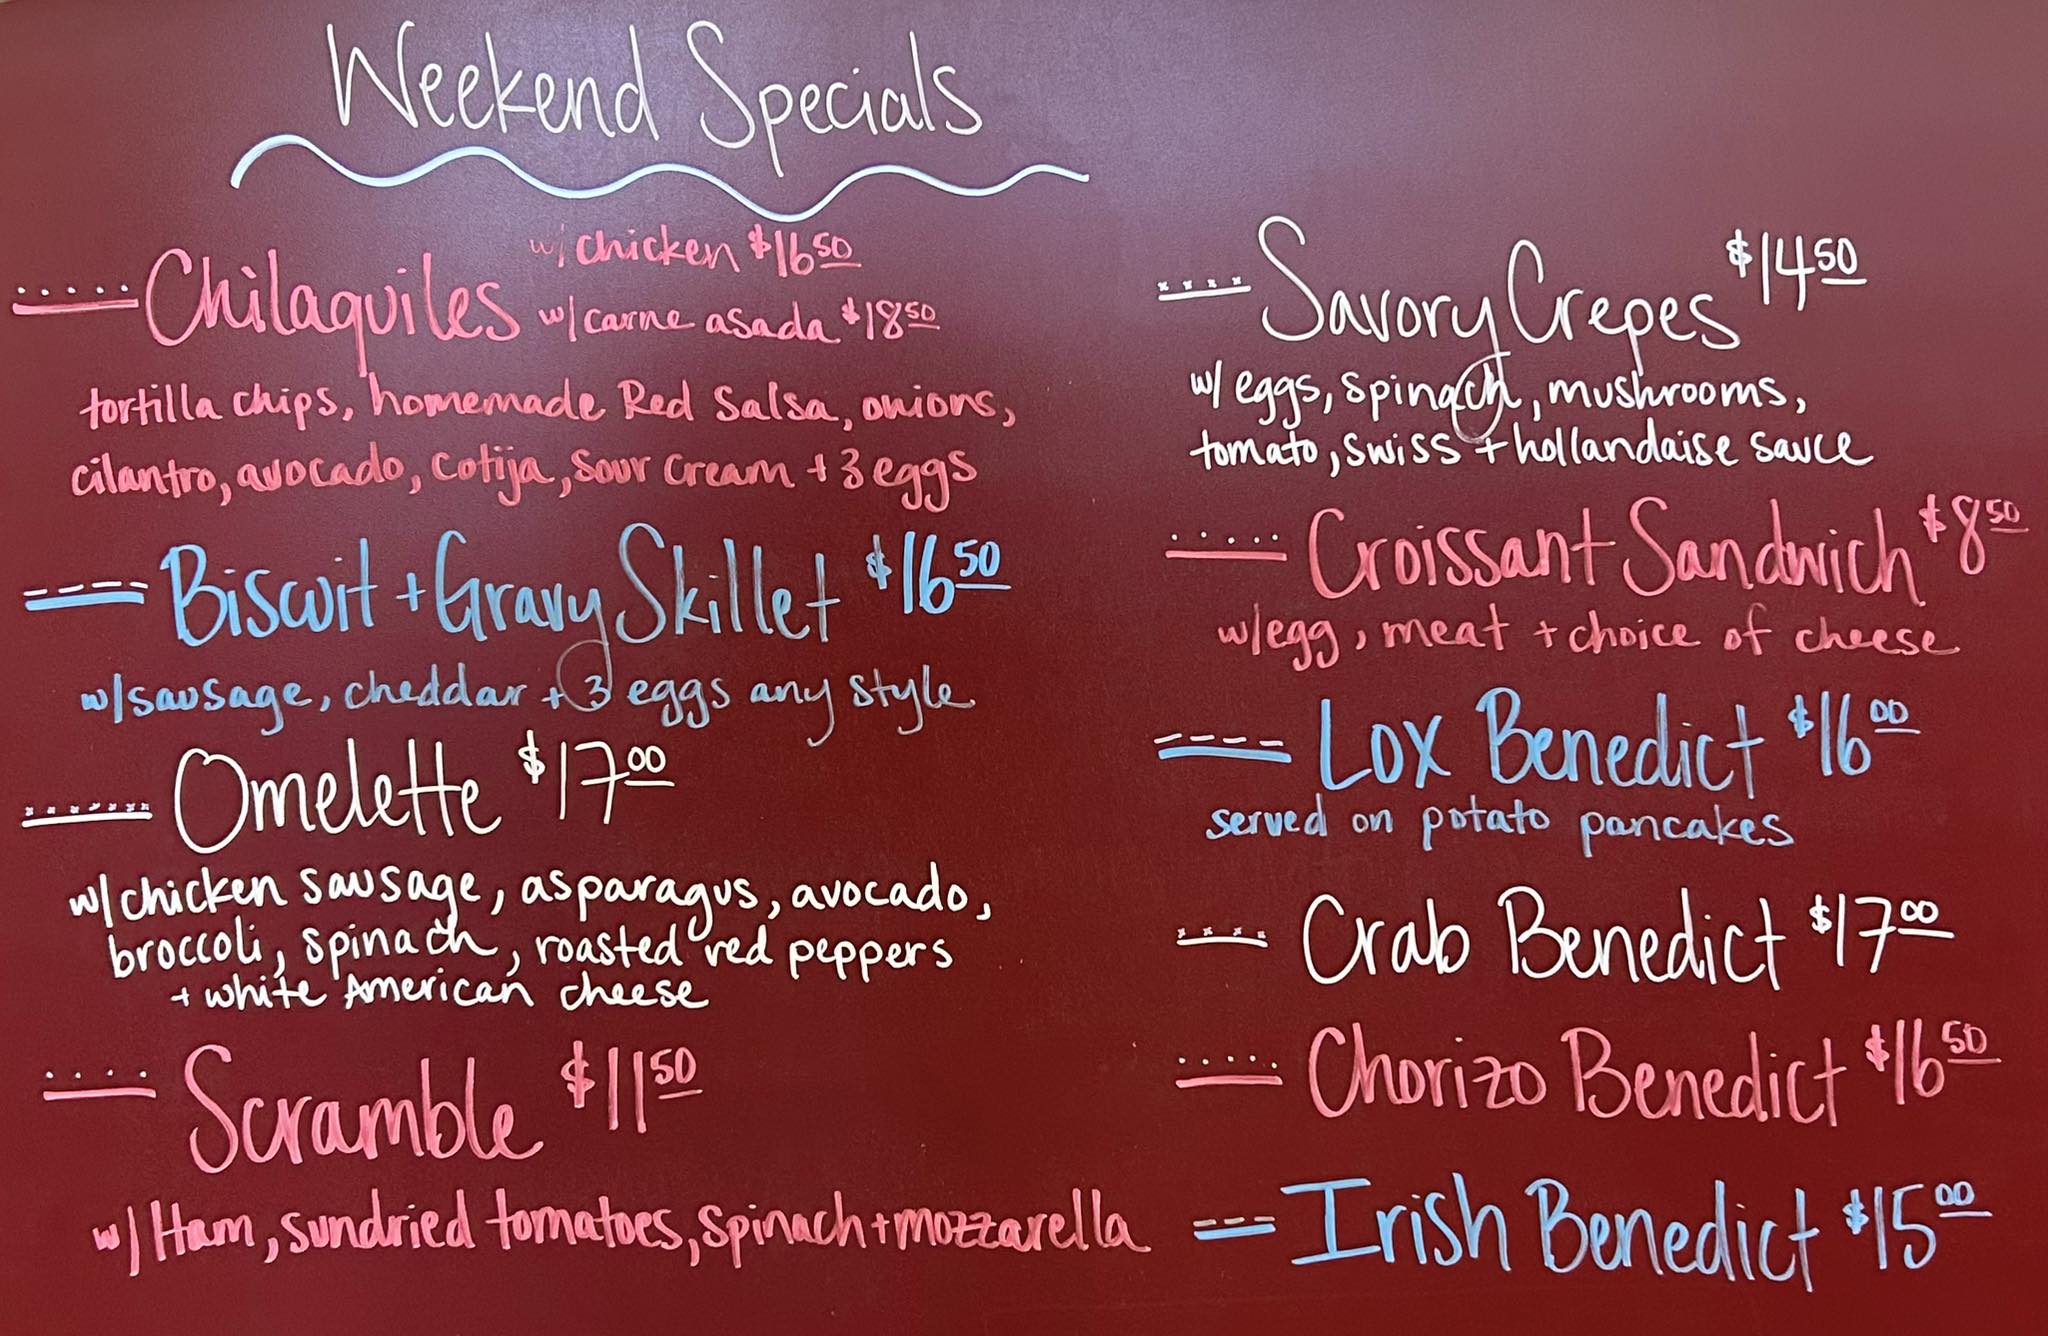 Weekend Specials
Chilaquiles w/ chicken $16.50
w/ carne asada $18.50
tortilla chips, homemade Red Salsa, onions,
cilantro, avocado, cotija, sour cream + 3 eggs
Biscuit + Gravy Skillet $16.50
w/ sausage, cheddar + 3 eggs any style
Omelette $17.00
w/ chicken sausage, asparagus, avocado,
broccoli, spinach, roasted red peppers
+ white American cheese
Scramble $11.50
w/ Ham, sundried tomatoes, spinach + mozzarella
Savory Crepes $14.50
w/ eggs, spinach, mushrooms,
tomato, swiss + hollandaise sauce
Croissant Sandwich $8.50
w/ egg, meat + choice of cheese
Lox Benedict $16.00
served on potato pancakes
Crab Benedict $17.00
Chorizo Benedict $16.50
Irish Benedict $15.00